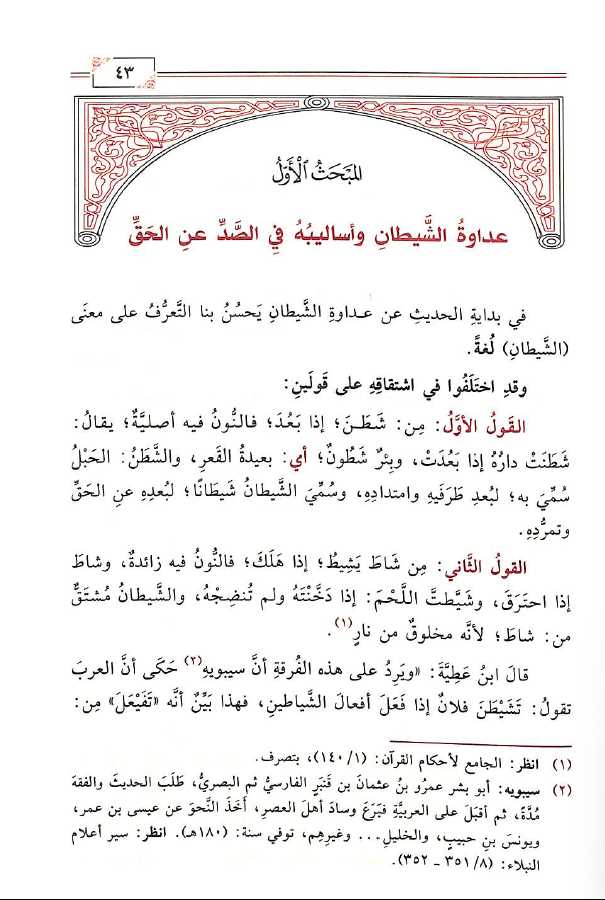 ٤٣
المَبْحَثُ الْأَوَّلُ
عداوةُ الشَّيطانِ وأساليبُهُ فِي الصَّدِّ عنِ الحَقِّ
في بدايةِ الحديثِ عن عداوةِ الشَّيطانِ يَحسُنُ بنا التَّعرُّفُ على معنَى
(الشَّيطانِ) لُغةً.
وقدِ اختَلَفُوا في اشتقاقِهِ على قَولَينِ:
القَولُ الأوَّلُ: مِن: شَطَـنَ؛ إذا بَعُدَ؛ فالنُّونُ فيه أصليَّةٌ؛ يقالُ:
شَطَنَتْ دارُهُ إذا بَعُدَتْ، وبِئرٌ شَطُونٌ؛ أي: بعيدةُ القَعرِ، والشَّطَنُ: الحَبْلُ
سُمِّيَ به؛ لبُعدِ طَرَفَيهِ وامتدادِهِ، وسُمِّيَ الشَّيطانُ شَيطَانًا؛ لبُعدِهِ عنِ الحَقِّ
وتمرُّدِهِ.
القولُ الثَّاني: مِن شَاطَ يَشِيطُ؛ إذا هَلَكَ؛ فالنُّونُ فيه زائدةٌ، وشاطَ
إذا احترَقَ، وشَيَّطتَّ اللَّحْمَ: إذا دَخَّنْتَهُ ولم تُنضِجْهُ، والشَّيطانُ مُشتَقٌّ
من: شاطَ؛ لأنَّه مخلوقٌ من نارٍ(١).
قالَ ابنُ عَطِيَّةَ: «ويَرِدُ على هذه الفُرقةِ أنَّ سيبويهِ(٢) حَكَى أنَّ العربَ
تقولُ: تَشَيْطَنَ فلانٌ إذا فَعَلَ أفعالَ الشَّياطينِ، فهذا بَيِّنٌ أنَّه «تَفَيْعَلَ» مِن:
(١) انظر: الجامع لأحكام القرآن: (١/ ١٤٠)، بتصرف.
(٢) سيبويه: أبو بشر عمرُو بنُ عثمانَ بن قَنبَرٍ الفارسيُّ ثم البصريُّ، طَلَبَ الحديثَ والفقهَ
مُدَّةً، ثم أقبَلَ على العربيَّةِ فبَرَعَ وسادَ أهلَ العصرِ، أَخَذَ النَّحوَ عن عيسى بن عمر،
ويونسَ بنِ حبيبٍ، والخليلِ... وغيرِهِم، توفي سنة: (١٨٠هـ). انظر: سير أعلام
النبلاء: (٨/ ٣٥١ - ٣٥٢).